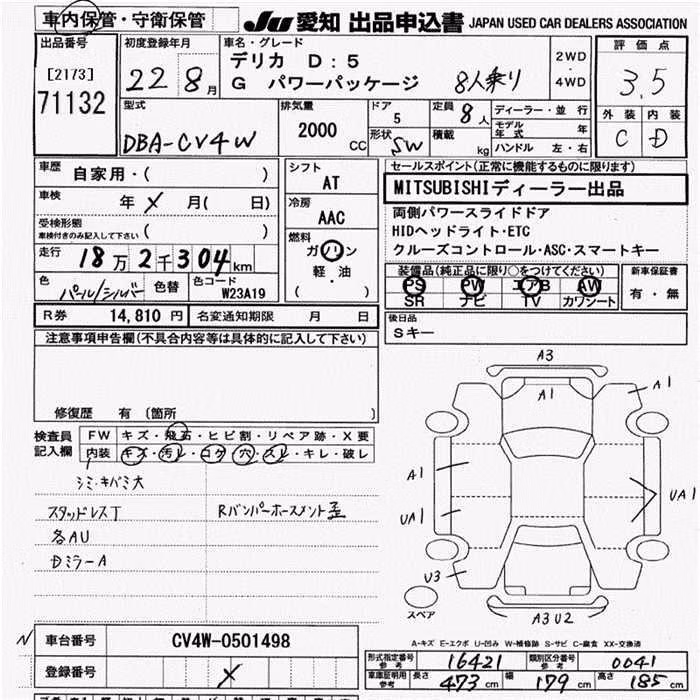 車内保管・守衛保管 JU 愛知 出品申込書 JAPAN USED CAR DEALERS ASSOCIATION
出品番号 初度登録年月 車名・グレード 評価点
[2173] 22 8月 デリカ D:5 2WD
71132 G パワーパッケージ 8人乗り 4WD 3.5
型式 排気量 ドア 定員 ディーラー・並行 外装 内装
DBA-CV4W 2000 CC 5 8人 モデル年式 年 C D
形状 SW 積載 kg ハンドル 左・右
車歴 自家用・( ) シフト セールスポイント(正常に機能するものに限ります)
AT MITSUBISHIディーラー出品
車検 年 X 月( 日) 冷房 両側パワースライドドア
受検形態 AAC HIDヘッドライト・ETC
車検付きのみ記入して下さい ( ) 燃料 クルーズコントロール・ASC・スマートキー
走行 18万2千304km ガソリン 装備品(純正品に限り○をつけてください) 新車保証書
軽・油 PS PW エアB AW 有・無
色 パール/シルバー 色替 色コード W23A19 ( ) SR ナビ TV カワシート
R券 14,810 円 名変通知期限 月 日 後日品
注意事項申告欄(不具合内容等は具体的に記入して下さい) Sキー
修復歴 有 (箇所 )
検査員 FW キズ・飛石・ヒビ割・リペア跡・X要
記入欄 内装 キズ・汚レ・コゲ・穴・スレ・キレ・破レ
シミ・キバミ大
スタッドレスT Rバンパーホースメント歪
各AU
DミラーA
A3
A1
A1
A1
UA1
UA1
U3
スペア
A3U2
N 車台番号 CV4W-0501498
登録番号 X
A-キズ E-エクボ U-凹み W-補修跡 S-サビ C-腐食 XX-交換済
形式指定番号 参考 16421 類別区分番号 参考 0041
車庫証明用 参考 長さ 473 cm 幅 179 cm 高さ 185 cm